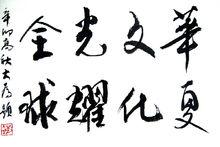 華夏
文化
光耀
全球
辛卯高秋大為題